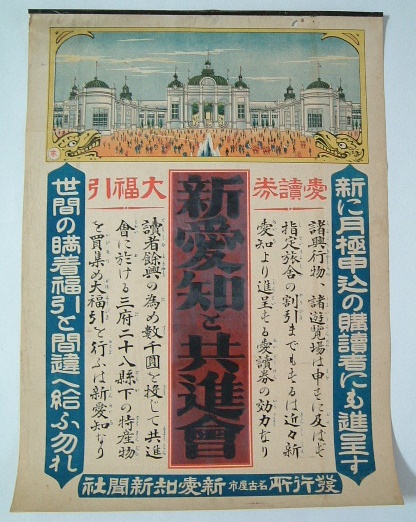 新に月極申込の購讀者にも進呈す
愛讀券
諸興行物、諸遊覽場は申すに及ばず
指定旅舎の割引までもするは近々新
愛知より進呈する愛讀券の効力なり
新愛知と共進會
大福引
讀者餘興の為め數千圓を投じて共進
會に於ける三府二十八縣下の特産物
を買集め大福引を行ふは新愛知なり
世間の瞞着福引と間違へ給ふ勿れ
發行所名古屋市新愛知新聞社